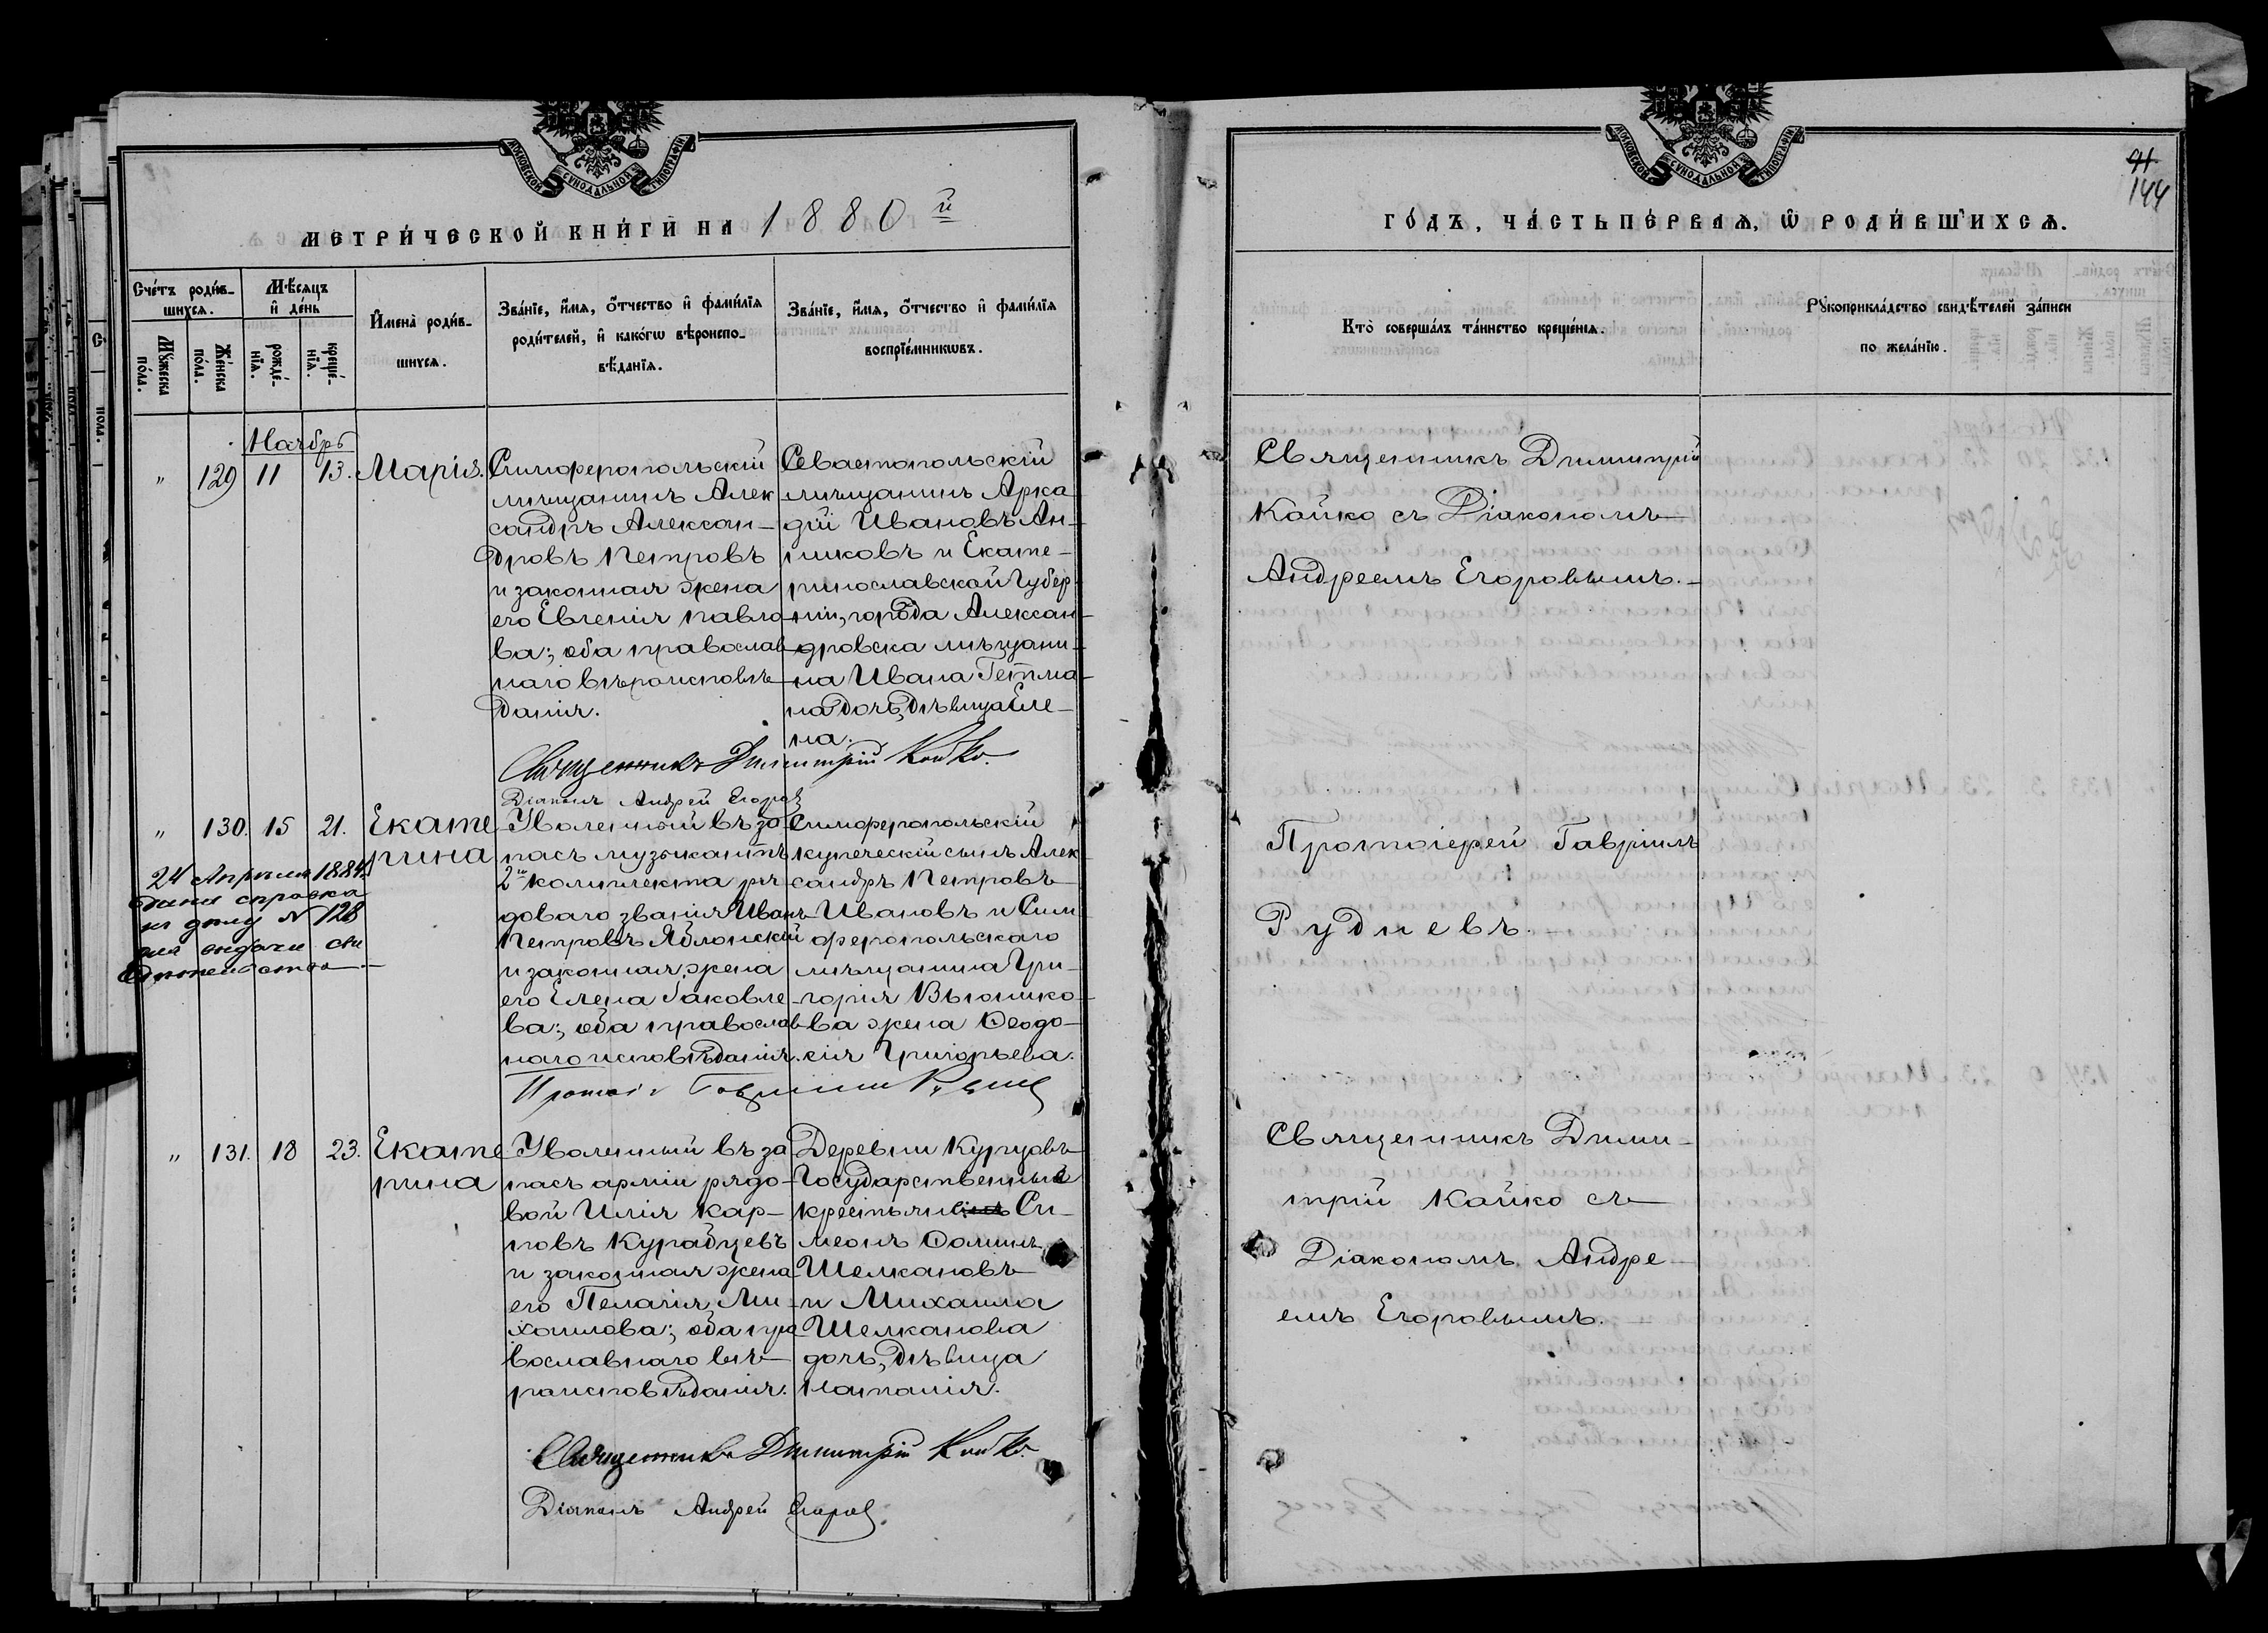 МОСКОВСКОЙ СѴНОДАЛЬНОЙ ТИПОГРАФІИ
МЕТРИ́ЧЕСКОЙ КНИ́ГИ НА 1880й
Сче́тъ роди́в-
шихсѧ.
Мѣ́сяцъ
и҆ де́нь
Мꙋ́жеска
по́ла.
Же́нска
по́ла.
рожде́-
нїѧ.
креще́-
нїѧ.
И҆мена̀ роди́в-
шихсѧ.
Зва́нїе, и҆́мѧ, ѻ҆́тчество и҆ фами́лїѧ
роди́телей, и҆ како́гѡ вѣроиспо-
вѣ́данїѧ.
Зва́нїе, и҆́мѧ, ѻ҆́тчество и҆ фами́лїѧ
воспрїе́мникѡвъ.
Ноябрь
" 129 11 13. Марія.
Симферопольскій
мѣщанинъ Алек
сандръ Алексан-
дровъ Петровъ
и законная жена
его Евгенія Павло
ва; оба православ
наго вѣроисповѣ-
данія.
Севастопольскій
мѣщанинъ Арка
дій Ивановъ Ан-
никовъ и Екате-
ринославской Губер-
ніи, города Алексан-
дровска мѣщани-
на Ивана Гетма-
на дочь, дѣвица Еле-
на.
Священникъ Димитрій Койко.
Діаконъ Андрей Егоровъ
" 130. 15 21. Екате
рина
24 Апрѣля 1884
дана справка
къ дѣлу № 128
для выдачи сви
дѣтельства
Уволенный въ за-
пасъ музыкантъ
2го комплекта ря
доваго званія Иванъ
Петровъ Яблонскій
и законная жена
его Елена Іаковле-
ва; оба православ
наго исповѣданія.
Симферопольскій
купеческій сынъ Алек
сандръ Петровъ
Ивановъ и Сим
феропольскаго
мѣщанина Гри-
горія Вьюнико-
ва жена Ѳеодо-
сія Григорьева.
Протоі. Гавріилъ Рудневъ
" 131. 18 23. Екате
рина
Уволенный въ за
пасъ арміи рядо-
вой Илія Кар-
повъ Курабцевъ
и законная жена
его Пелагія Ми-
хаилова; оба пра
вославнаго вѣ-
роисповѣданія.
Деревни Курцовъ
Государственные
крестьяне Си-
меонъ Ѳоминъ
Шелкановъ
и Михаила
Шелканова
дочь, дѣвица
Наталія.
Священникъ Димитрій Койко.
Діаконъ Андрей Егоровъ
МОСКОВСКОЙ СѴНОДАЛЬНОЙ ТИПОГРАФІИ
91
144
ГО́ДЪ, ЧА́СТЬ ПЕ́РВАѦ, Ѡ҆ РОДИ́ВШИХСѦ.
Кто̀ соверша́лъ та́инство креще́нїѧ.
Рꙋкоприкла́дство свидѣ́телей за́писи
по жела́нїю.
Священникъ Димитрій
Койко съ Діакономъ
Андреемъ Егоровымъ.
Протоіерей Гавріилъ
Рудневъ.
Священникъ Дими-
трій Койко съ
Діакономъ Андре-
емъ Егоровымъ.